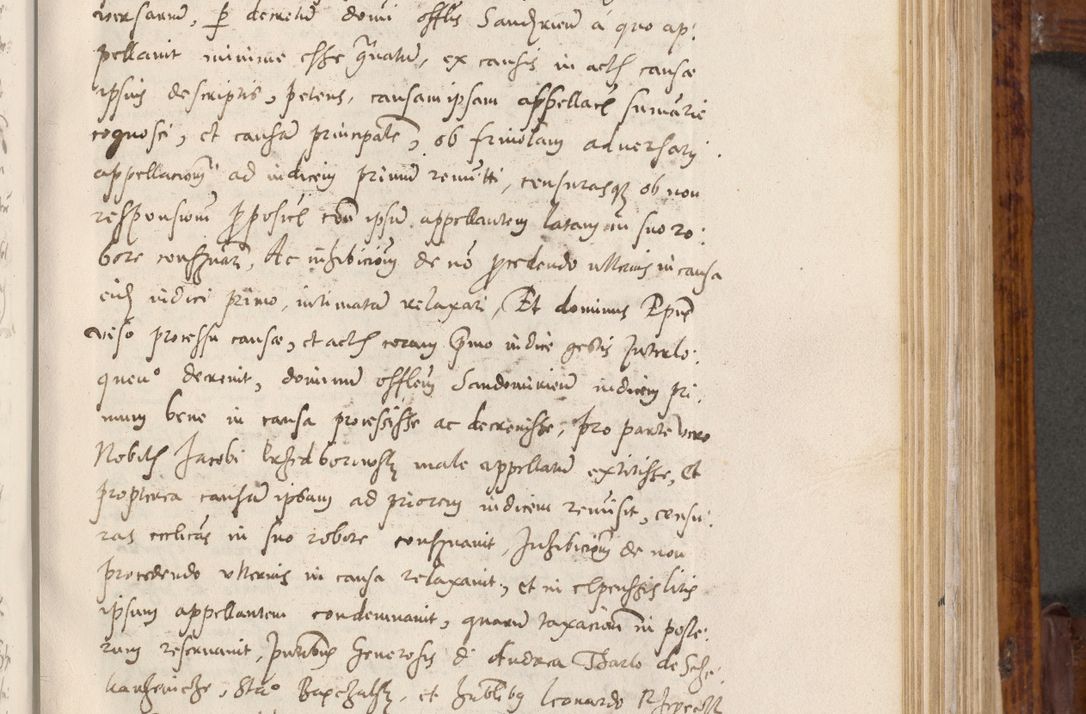 versarium, per decretum domini offlis Sandrien a quo ap:
pellavit minime esse gravatum, ex causis in actis causae
ipsius descriptis, petens, causam ipsam appellacis summarie
cognosci, et causam principalem, ob frivolam adversarij
appellacionem ad iudicem primum remitti, censurasque ob non
responsionem proposicis contra ipsum appellantem latam in suo ro:
bore confirmari, Ac inhibicionem de non procedendo ulterius in causa
eidem iudici primo, intimatam relaxari, Et dominus Epus
viso processu causae, et actis coram primo iudice gestis Interlo:
quendo decrevit, dominum offlem Sandomirien iudicem pri:
mum bene in causa processisse ac decrevisse, pro parte vero
Nobilis Jacobi male appellatum extitisse, Et
propterea causam ipsam ad priorem iudicem remisit, censu:
ras ecclicas in suo robore confirmavit, Inhibicionem de non
procedendo ulterius in causa relaxavit, et in expensis litis
ipsum appellantem condemnavit, quarum taxacionem in poste:
rum reservavit, Presentibus Generosis D Andrea Tharlo de
et Leonardo